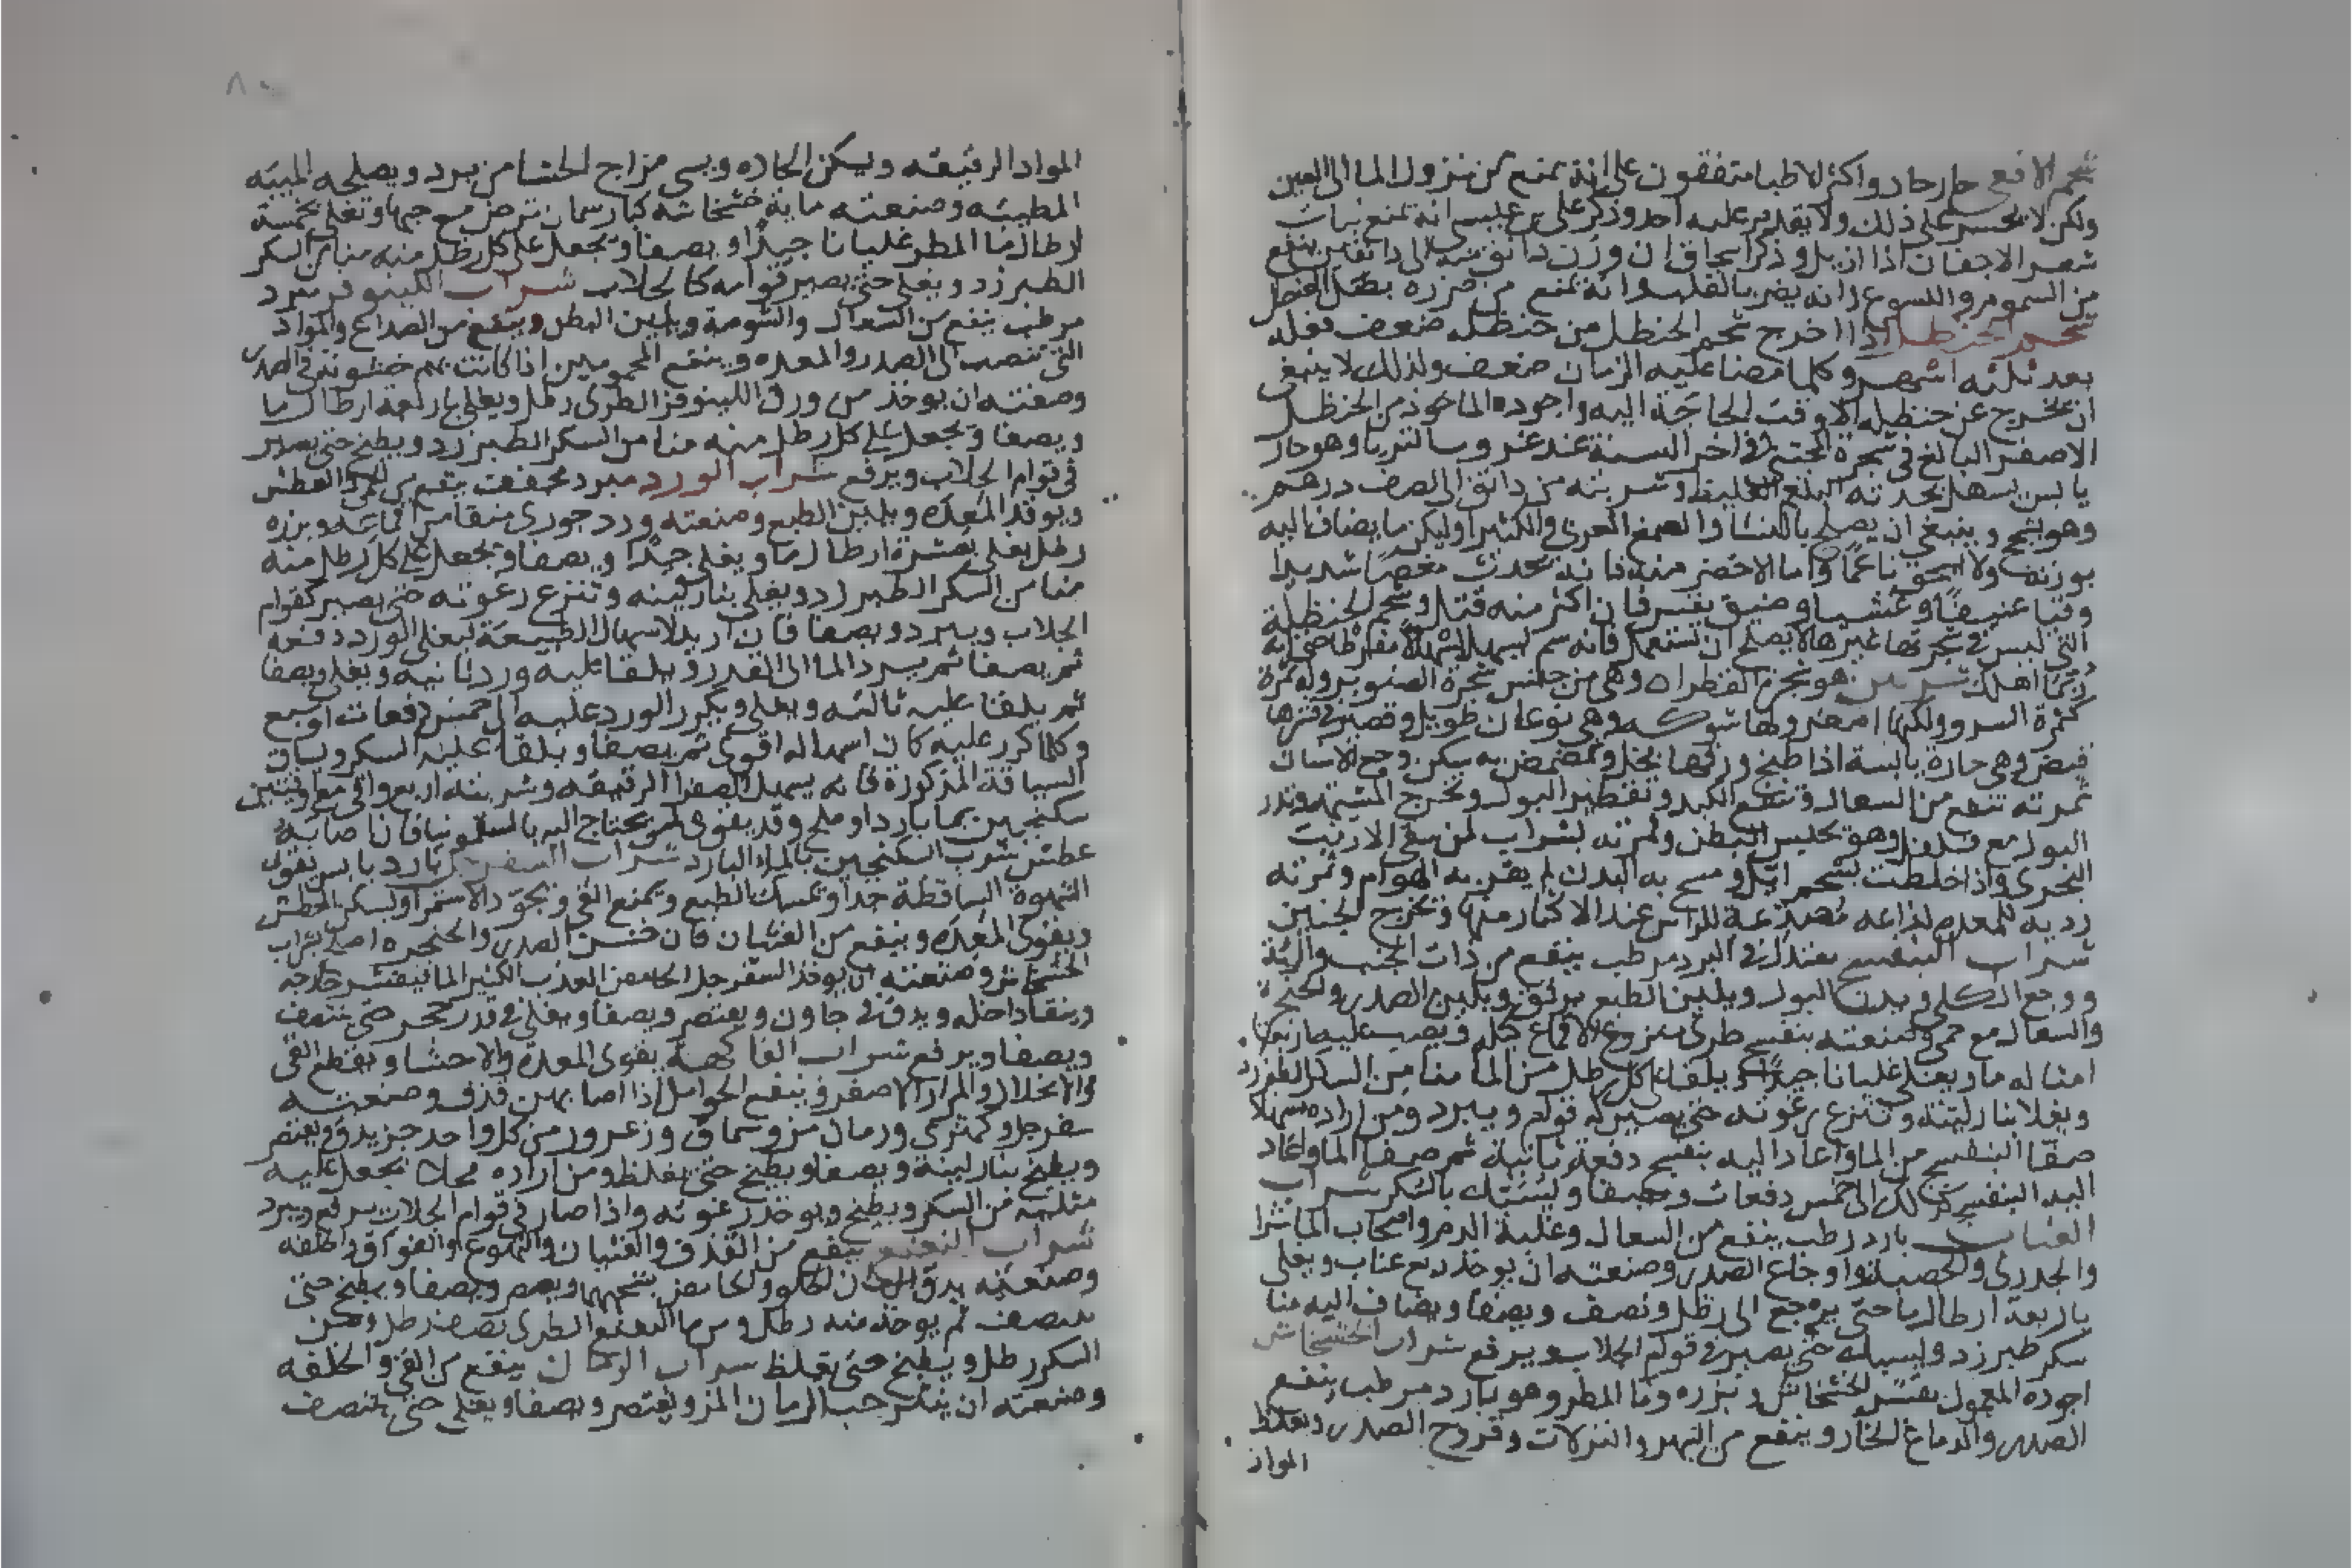 شحم الافعى حار حاد واكثر الاطبا متفقون على انه يمنع من نزول الما الى العين
ولكن لا يجسر على ذلك ولا يقدم عليه احد وذكر على بن عيسى انه يمنع نبات
شعر الاجفان اذا ان وذكر اسحاق ان وزن دانق منه الى دانقين ينفع
من السموم واللسوع وانه يضر بالقلب وانه يمنع من ضرره
شحم الحنظل اذا اخرج شحم الحنظل من حنظله ضعف فعله
بعد ثلثه اشهر وكلما مضا عليه الزمان ضعف ولذلك لا ينبغى
ان يخرج عن حنظله الا وقت الحاجة اليه واجوده الماخوذ من الحنظل
الاصفر البالغ فى شجرة المجتنى فى اخر السنة عند غروب الثريا وهو حار
يابس يسهل بحدته البلغم الغليظ وشربته من دانق الى نصف درهم
وهو يسحج وينبغى ان يصلح بالنشا والصمغ العربى والكثيرا وليكن ما يضاف اليه
بوزنه ولا يسحق ناعما واما الاخضر منه فانه يحدث مغصا شديدا
وقيا عنيفا وغشيا وضيق نفس فان اكثر منه قتل وشحم الحنظلة
التى ليس فى شجرتها غيرها لا يصلح ان تستعمل فانه سم يسهل اسهالا مفرطا حتى انه
ربما اهلك شربين هو شجر القطران وهى من جنس شجرة الصنوبر وله ثمرة
كثمرة السرو ولكنها اصغر ولها شوك وهى نوعان طويل وقصير فى قشرها
قبض وهى حارة يابسة اذا طبخ ورقها بخل وتمضمض به سكن وجع الاسنان
ثمرته تنفع من السعال وتنفع الكبد وتقطير البول وتخرج المشيمة وتدر
البول مع فلفل وهو يحبس البطن وثمرته بشراب لمن سقى الارنب
البحرى واذا خلطت بشحم ايل ومسح به البدن لم يقربه الهوام وثمرته
رديه للمعده لذاعه مصدعة للراس عند الاكثار منها وتخرج الجنين
شراب البنفسج معتدل فى البرد مرطب ينفع من ذات الجنب والرئة
ووجع الكلى ويدر البول ويلين الطبع برفق ويلين الصدر والحنجرة
والسعال مع حمى وصنعته بنفسج طرى منزوع الاقماع جله ويصب عليه اربعة
امثاله ما ويغلى غليانا جيدا ويلقا على كل رطل من الما منا من السكر الطبرزد
ويغلا بنار لينة وتنزع رغوته حتى يصير له قوام ويبرد ومن اراده مسهلا
صفا البنفسج من الما واعاد اليه بنفسج دفعة ثانية ثم صفا الما واعاد
اليه البنفسج كذلك الى خمس دفعات ويصفا بالسكر شراب
العناب بارد رطب ينفع من السعال وغلبة الدم واصحاب الماشرا
والجدرى والحصبة واوجاع الصدر وصنعته ان يوخذ ربع عناب ويغلى
باربعة ارطال ما حتى يرجع الى رطل ونصف ويصفا ويضاف اليه منا
سكر طبرزد حتى يصير فى قوام الجلاب ويرفع شراب الخشخاش
اجوده المعمول بقشر الخشخاش وبزره وما المطر وهو بارد مرطب ينفع
الصدر والدماغ الحار وينفع من السهر والنزلات وقروح الصدر ويغلظ
المواد
٨٠
المواد الرقيقه ويسكن الحاده ويسى مزاج الحشا من برد ويصلحه الميبه
المطيبه وصنعته ماية خشخاشه كبار سمان ترض مع حبها وتغلى بخمسة
ارطال ما المطر غليانا جيدا ويصفا ويجعل على كل رطل منه منا من السكر
الطبرزد ويغلى حتى يصير قوامه كالجلاب شراب اللينوفر مبرد
مرطب ينفع من السعال والشوصة ويلين البطن وينفع من الصداع والمواد
التى تنصب الى الصدر والمعده وينفع المحمومين اذا كانت بهم خشونه فى الصدر
وصنعته ان يوخذ من ورق اللينوفر الطرى رطل ويغلى باربعة ارطال ما
ويصفا ويجعل على كل رطل منه منا من السكر الطبرزد ويطبخ حتى يصير
فى قوام الجلاب ويرفع شراب الورد مبرد مجفف ينفع من الحمى والعطش
ويوقد المعده ويلين الطبع وصنعته ورد جورى منقا من اقماعه وبزره
رطل يغلى بعشرة ارطال ما ويغلى جيدا ويصفا ويجعل على كل رطل منه
منا من السكر الطبرزد ويغلى بنار لينه وتنزع رغوته حتى يصير كقوام
الجلاب ويبرد ويصفا فان اريد لاسهال الطبيعة ليغلى الورد دفعه
ثم يصفا ثم يرد الما الى القدر ويلقا عليه ورد ثانيه ويغلى ويصفا
ثم يلقا عليه ثالثه ويغلى ويكرر الورد عليه الى خمس دفعات او سبع
وكلما كرر عليه كان اسهاله اقوى ثم يصفا ويلقا عليه السكر ويساق
السياقة المذكورة فانه يسهل الصفرا الرقيقه وشربته اربع واقى مع اوقيتين
سكنجبين بما بارد او ملح وقد يقوى لمن يحتاج اليه بالسقمونيا فان اصابه
عطش شرب السكنجبين بالماء البارد شراب السفرجل بارد يابس يقوى
الشهوة الساقطة جدا ويمسك الطبع ويمنع القى ويجود الاستمرا ويسكن العطش
ويقوى المعده وينفع من الغثيان فان خشن الصدر والحنجره اصلح بشراب
الخشخاش وصنعته ان يوخذ السفرجل الحامض العذب الكثير الما فيقشر خارجه
وينقا داخله ويدق فى جاون ويعتصر ويصفا ويغلى فى قدر حجر حتى ينتصف
ويصفا ويرفع شراب الفاكهة يقوى المعده والاحشا ويقطع القى
والانحلال والمرار الاصفر وينفع الحوامل اذا اصابهن قذف وصنعته
سفرجل وكمثرى ورمان مز وسماق وزعرور من كل واحد جز يدق ويعتصر
ويطبخ بنار لينة ويصفا ويطبخ حتى يغلظ ومن اراده محلا يجعل عليه
مثله من السكر ويطبخ ويوخذ رغوته واذا صار فى قوام الجلاب يرفع ويبرد
شراب النعنع ينفع من القذف والغثيان والتهوع والفواق والخلفه
وصنعته يدق الرمان الحلو والحامض بشحمهما ويعصر ويصفا ويطبخ حتى
ينتصف ثم يوخذ منه رطل ومن ما النعنع الطرى نصف رطل ومن
السكر رطل ويطبخ حتى يغلظ شراب الرمان ينفع من القى والخلفه
وصنعته ان ينثر حب الرمان المز ويعتصر ويصفا ويغلى حتى ينتصف